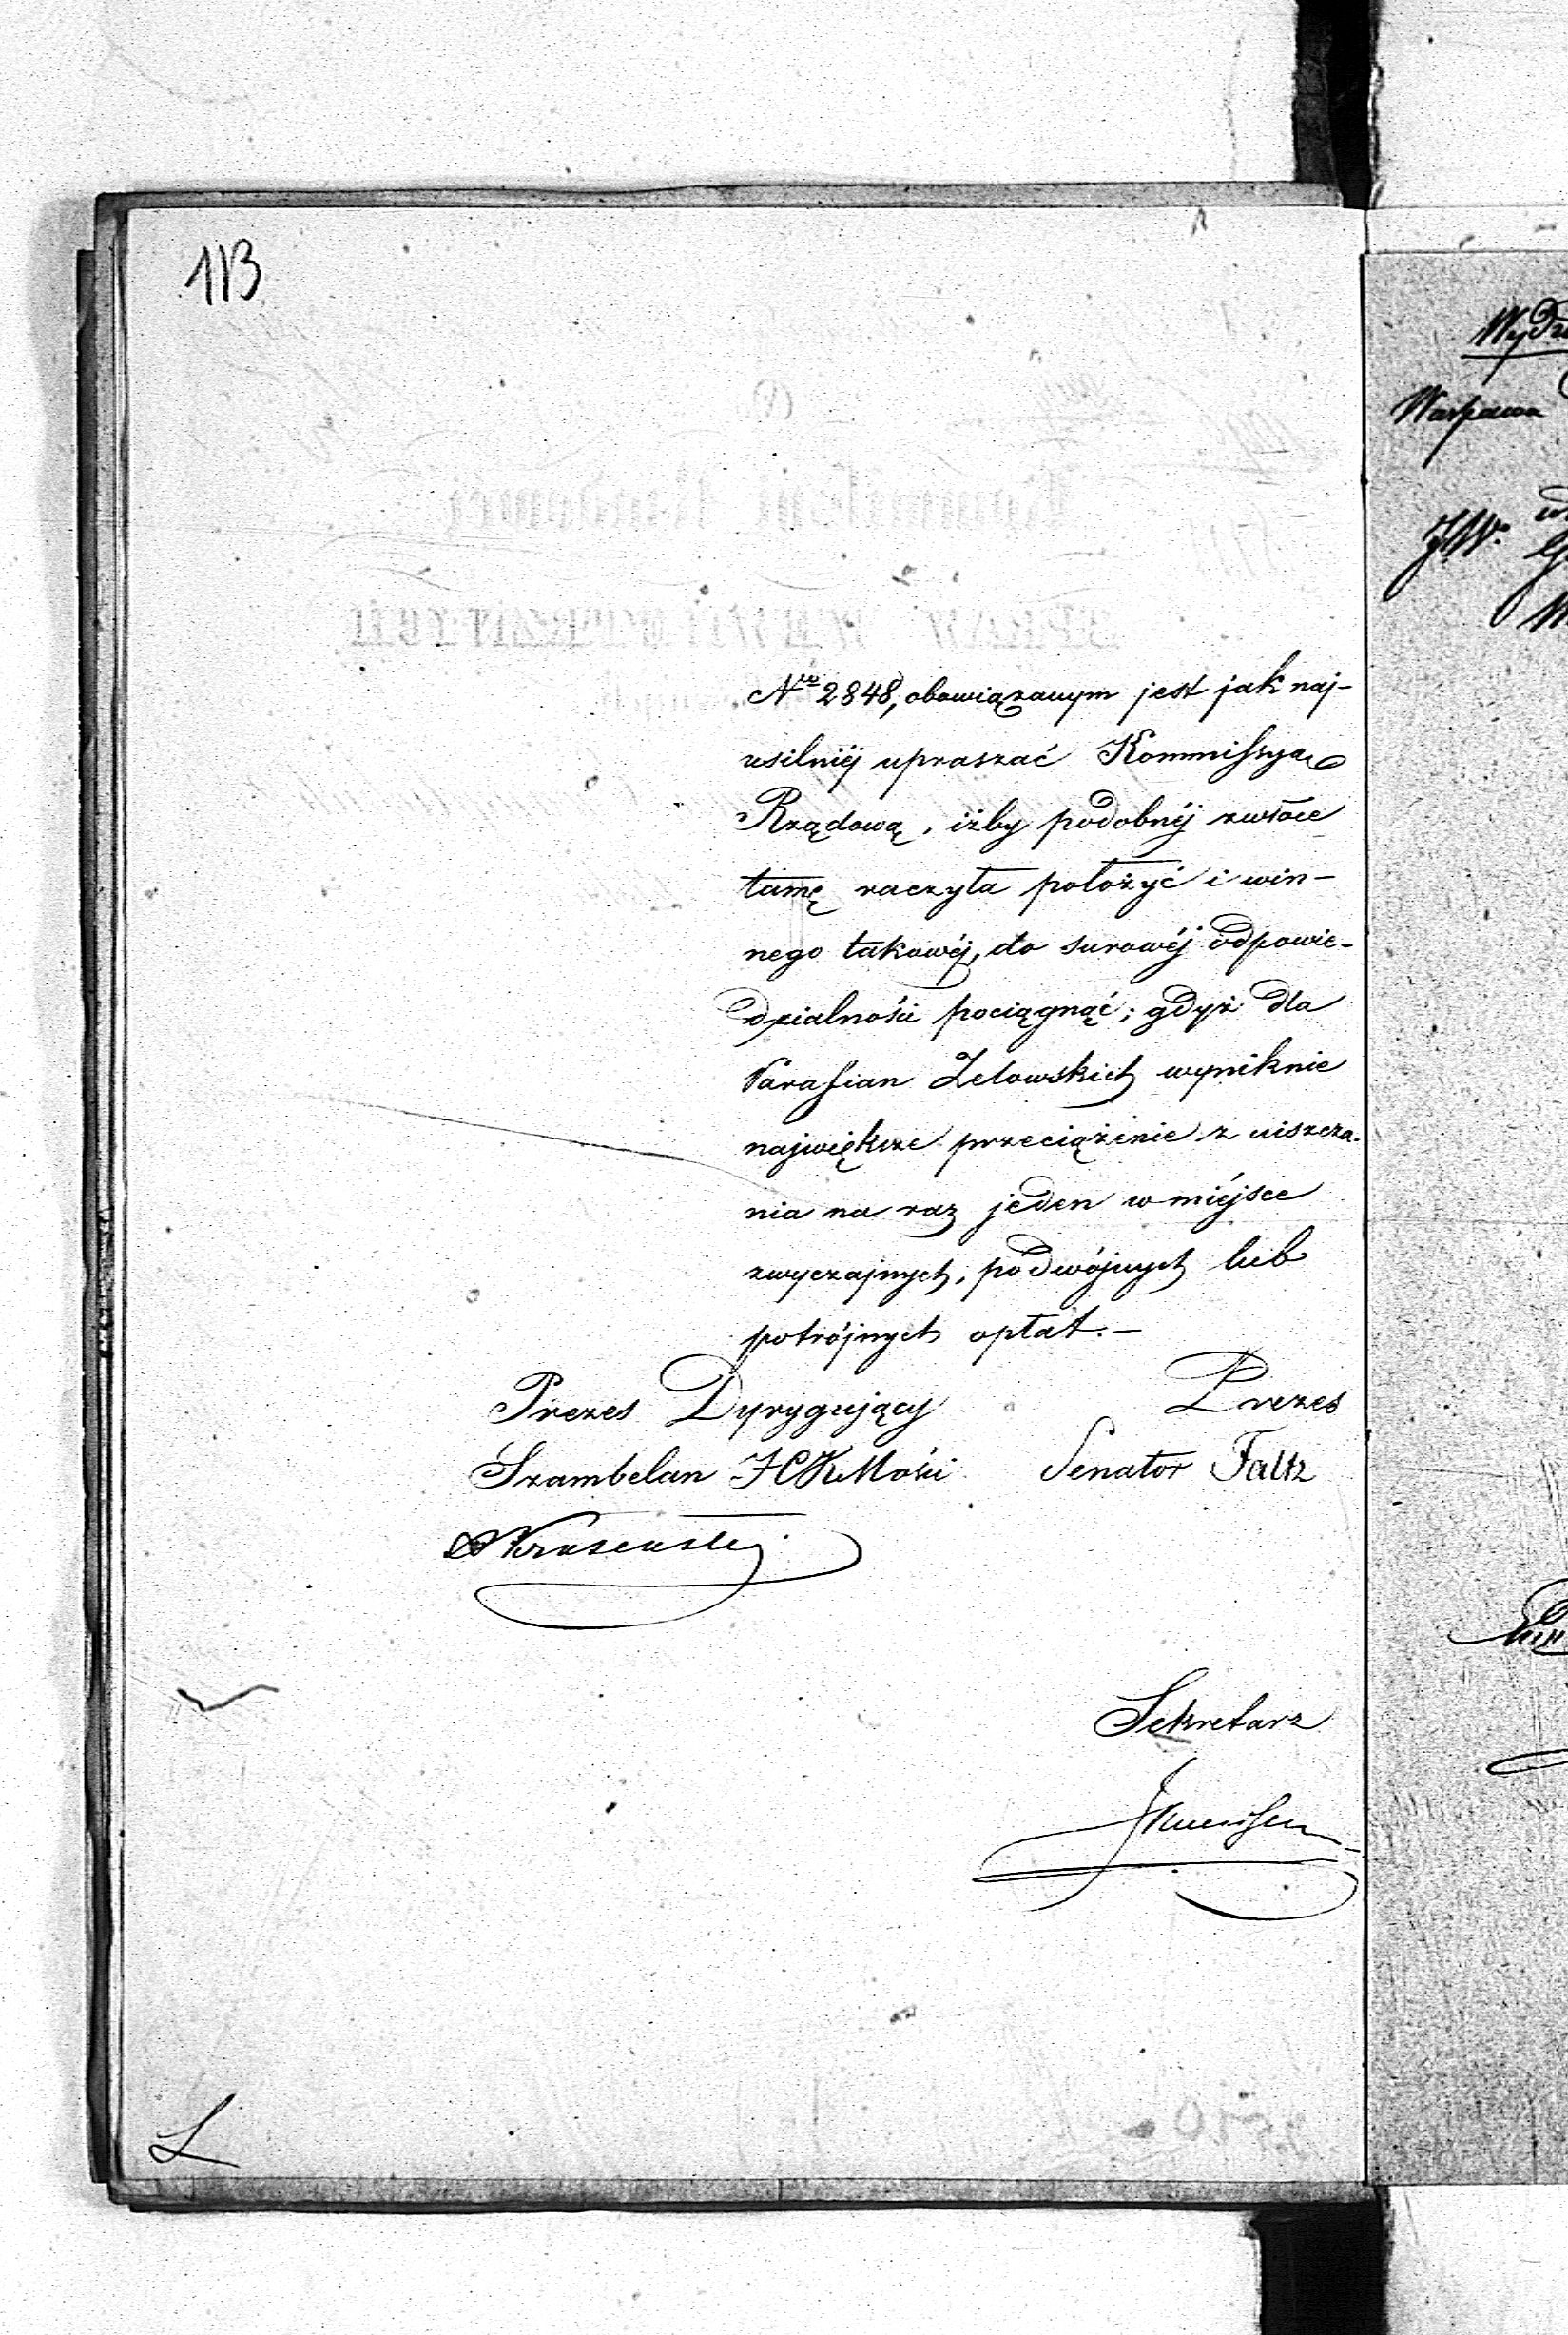 113
Nrо 2848, obowiązanym jest jak naj-
usilniéj upraszać Kommissyą
Rządową, iżby podobnéj zwłoce
tamę raczyła położyć i win-
nego takowéj, do surowéj odpowie-
dzialności pociągnąć; gdyż dla
Parafian Zelowskich wyniknie
największe przeciążenie z uiszcza-
nia na raz jeden w miéjsce
zwyczajnych, podwójnych lub
potrójnych opłat.—
Prezes Dyrygujący
Prezes
Szambelan JCKMości
Senator Faltz
Sekretarz
Wydz
Warszawa
JW.